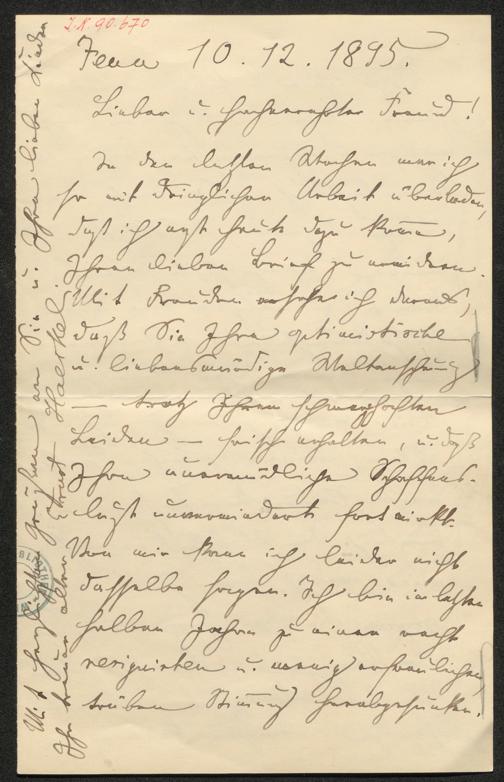 J.N. 90.670
Jena 10.12.1895.
Lieber u. hochverehrter Freund!
In den letzten Wochen war ich
so mit dringlicher Arbeit überladen,
daß ich erst heute dazu komme,
Ihren lieben Brief zu erwidern.
Mit Freuden ersehe ich daraus,
daß Sie Ihre optimistische
u. liebenswürdige Weltanschauung
— trotz Ihren schmerzhaften
Leiden — frisch erhalten, u. daß
Ihre unermüdliche Schaffens-
lust unvermindert fortwirkt.
Von mir kann ich leider nicht
dasselbe sagen. Ich bin im letzten
halben Jahre zu einer recht
resignirten u. wenig erfreulichen
trüben Stimmung herabgesunken.
Mit herzlichsten Grüßen an Sie u. Ihre lieben
Ihr treuer alter Ernst Haeckel.